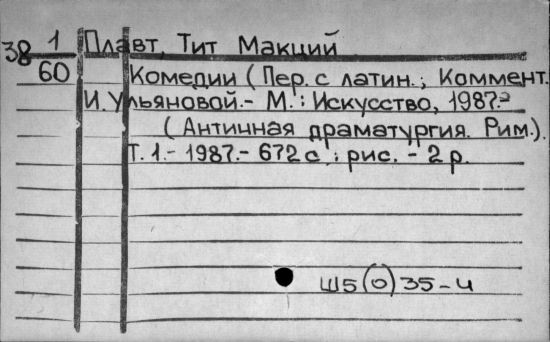 38 1/60 Плавт, Тит Макций
Комедии (Пер. с латин.; Коммент.
И. Ульяновой.- М.: Искусство, 1987.-
(Античная драматургия. Рим.).
Т. 1.- 1987.- 672 с.: рис. - 2 р.
Ш5(0)35-4